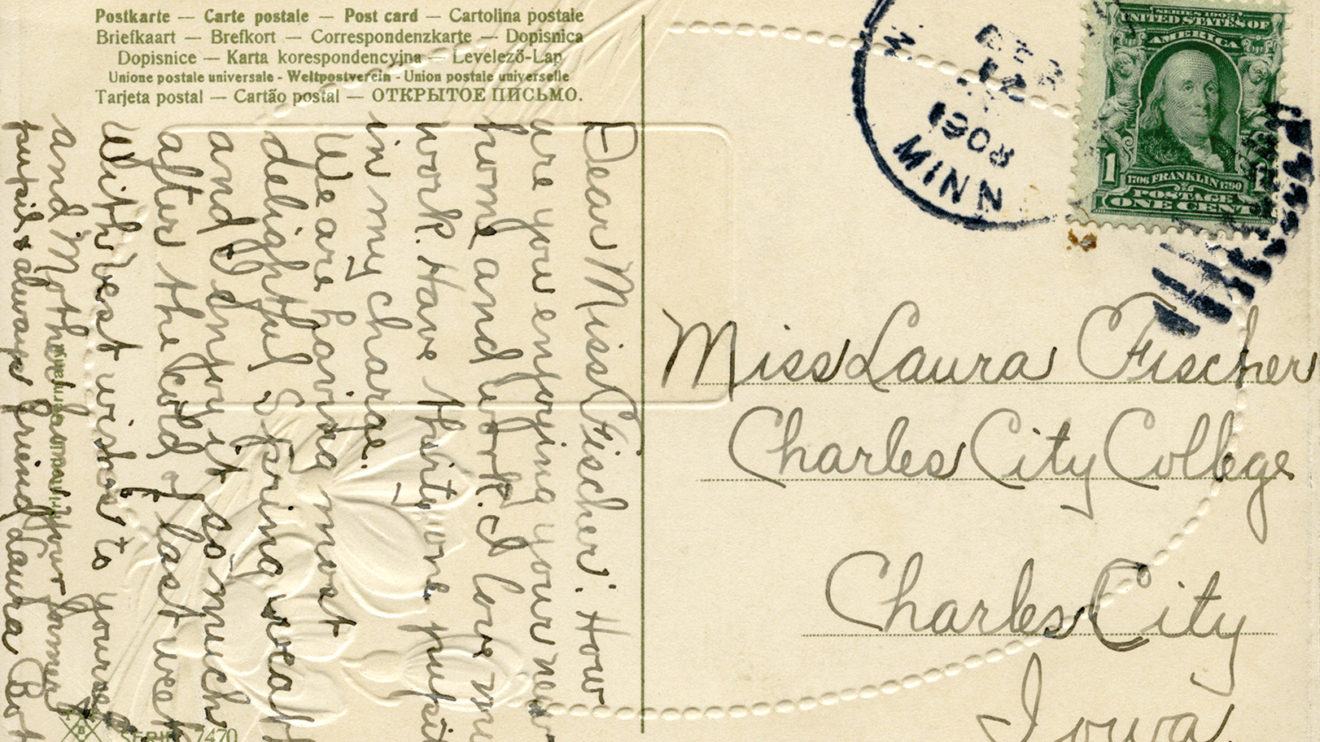 Postkarte — Carte postale — Post card — Cartolina postale
Briefkaart — Brefkort — Correspondenzkarte — Dopisnica
Dopisnice — Karta korespondencyjna — Levelező-Lap
Unione postale universale - Weltpostverein - Union postale universelle
Tarjeta postal — Cartão postal — ОТКРЫТОЕ ПИСЬМО.
Dear Miss Fischer: How
are you enjoying your new
home and work. I love my
work. Have thirty one pupils
in my charge.
We are having most
delightful Spring weat
and I enjoy it so much
after the cold of last week
With best wishes to yourself
and Mother from your former
pupil & always friend Laura
SERIE 7470
MINN
1908
SERIES 1902
UNITED STATES OF
AMERICA
1
1706 FRANKLIN 1790
POSTAGE
ONE CENT
Miss Laura Fischer
Charles City College
Charles City
Iowa.